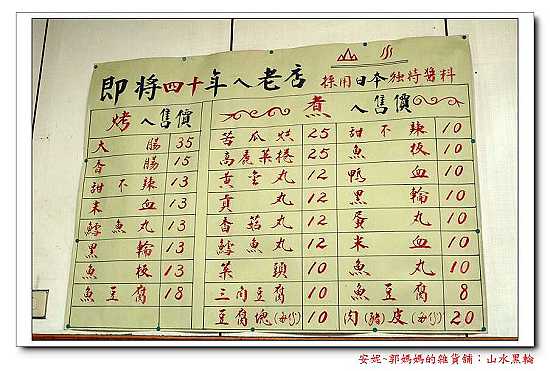 即將四十年ㄟ老店 採用日本獨特醬料
烤ㄟ售價
大腸 35
香腸 15
甜不辣 13
米血 13
鱈魚丸 13
黑輪 13
魚板 13
魚豆腐 18
煮ㄟ售價
苦瓜封 25
高麗菜捲 25
黃金丸 12
貢丸 12
香菇丸 12
鱈魚丸 12
菜頭 10
三角豆腐 10
豆腐塊(每份) 10
甜不辣 10
魚板 10
鴨血 10
黑輪 10
蛋丸 10
米血 10
魚丸 10
魚豆腐 8
肉(豬)皮(每份) 20
安妮~郭媽媽的雜貨舖：山水黑輪